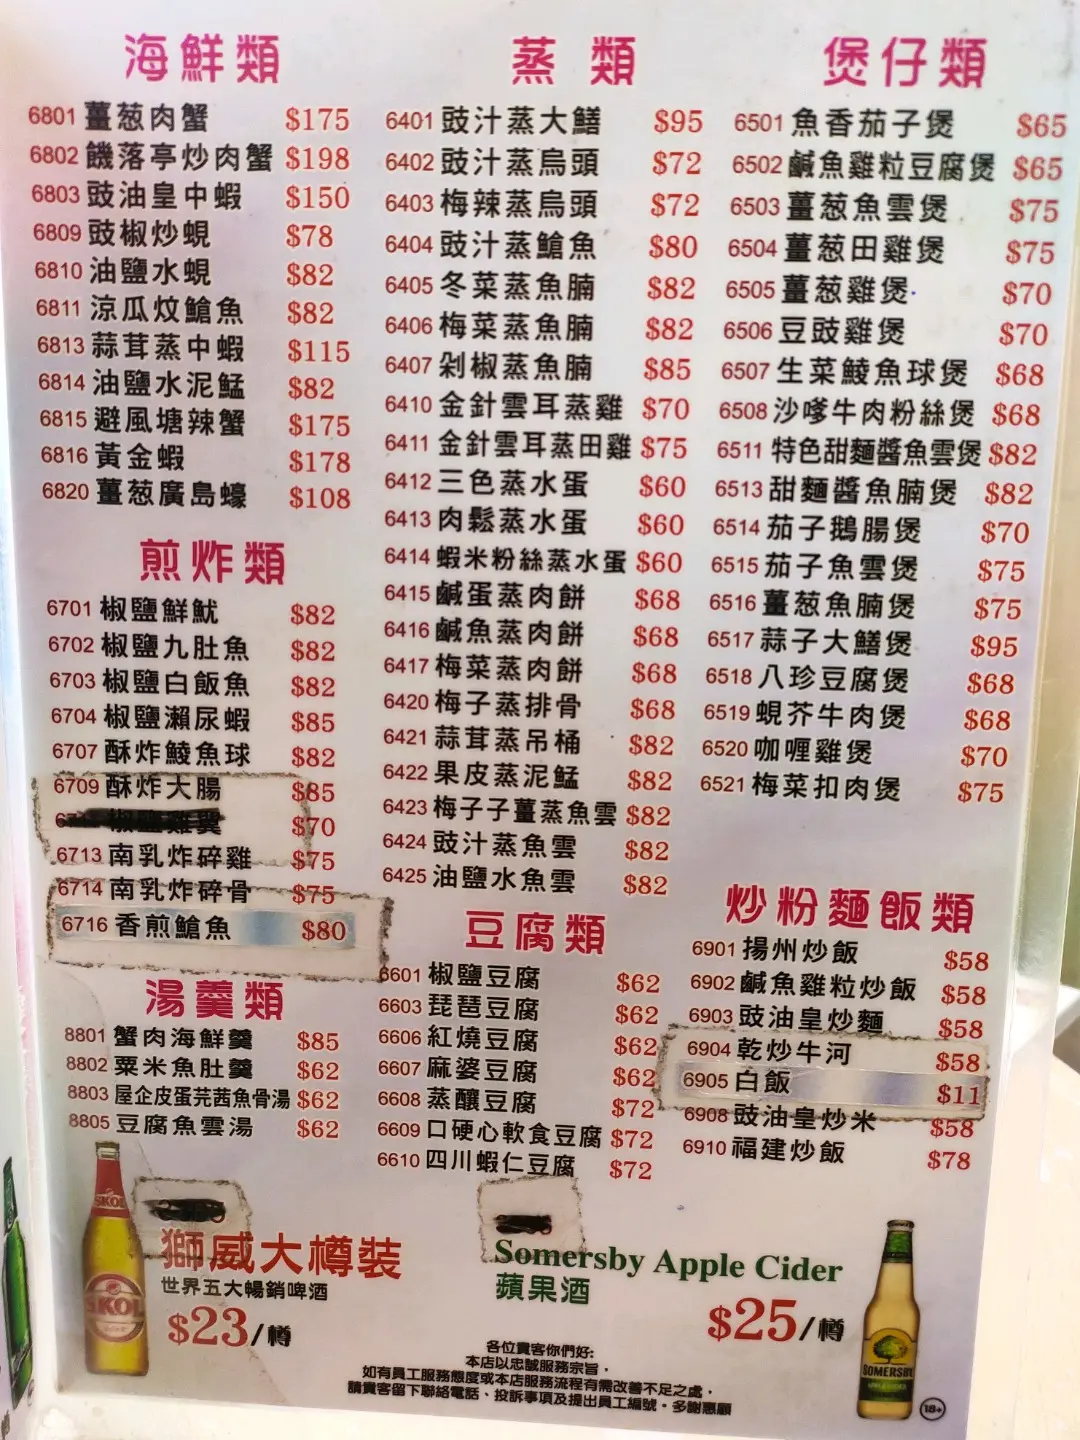 海鮮類
6801 薑葱肉蟹 $175
6802 饑落亭炒肉蟹 $198
6803 豉油皇中蝦 $150
6809 豉椒炒蜆 $78
6810 油鹽水蜆 $82
6811 涼瓜炆鱠魚 $82
6813 蒜茸蒸中蝦 $115
6814 油鹽水泥鯭 $82
6815 避風塘辣蟹 $175
6816 黃金蝦 $178
6820 薑葱廣島蠔 $108
煎炸類
6701 椒鹽鮮魷 $82
6702 椒鹽九肚魚 $82
6703 椒鹽白飯魚 $82
6704 椒鹽瀨尿蝦 $85
6707 酥炸鯪魚球 $82
6709 酥炸大腸 $85
椒鹽雞翼 $70
6713 南乳炸碎雞 $75
6714 南乳炸碎骨 $75
6716 香煎鱠魚 $80
湯羹類
8801 蟹肉海鮮羹 $85
8802 粟米魚肚羹 $62
8803 屋企皮蛋芫茜魚骨湯 $62
8805 豆腐魚雲湯 $62
蒸類
6401 豉汁蒸大鱔 $95
6402 豉汁蒸烏頭 $72
6403 梅辣蒸烏頭 $72
6404 豉汁蒸鱠魚 $80
6405 冬菜蒸魚腩 $82
6406 梅菜蒸魚腩 $82
6407 剁椒蒸魚腩 $85
6410 金針雲耳蒸雞 $70
6411 金針雲耳蒸田雞 $75
6412 三色蒸水蛋 $60
6413 肉鬆蒸水蛋 $60
6414 蝦米粉絲蒸水蛋 $60
6415 鹹蛋蒸肉餅 $68
6416 鹹魚蒸肉餅 $68
6417 梅菜蒸肉餅 $68
6420 梅子蒸排骨 $68
6421 蒜茸蒸吊桶 $82
6422 果皮蒸泥鯭 $82
6423 梅子子薑蒸魚雲 $82
6424 豉汁蒸魚雲 $82
6425 油鹽水魚雲 $82
豆腐類
6601 椒鹽豆腐 $62
6603 琵琶豆腐 $62
6606 紅燒豆腐 $62
6607 麻婆豆腐 $62
6608 蒸釀豆腐 $72
6609 口硬心軟食豆腐 $72
6610 四川蝦仁豆腐 $72
煲仔類
6501 魚香茄子煲 $65
6502 鹹魚雞粒豆腐煲 $65
6503 薑葱魚雲煲 $75
6504 薑葱田雞煲 $75
6505 薑葱雞煲 $70
6506 豆豉雞煲 $70
6507 生菜鯪魚球煲 $68
6508 沙嗲牛肉粉絲煲 $68
6511 特色甜麵醬魚雲煲 $82
6513 甜麵醬魚腩煲 $82
6514 茄子鵝腸煲 $70
6515 茄子魚雲煲 $75
6516 薑葱魚腩煲 $75
6517 蒜子大鱔煲 $95
6518 八珍豆腐煲 $68
6519 蜆芥牛肉煲 $68
6520 咖喱雞煲 $70
6521 梅菜扣肉煲 $75
炒粉麵飯類
6901 揚州炒飯 $58
6902 鹹魚雞粒炒飯 $58
6903 豉油皇炒麵 $58
6904 乾炒牛河 $58
6905 白飯 $11
6908 豉油皇炒米 $58
6910 福建炒飯 $78
SKOL
SKOL
獅威大樽裝
世界五大暢銷啤酒
$23/樽
Somersby Apple Cider
蘋果酒
$25/樽
SOMERSBY
18+
各位貴客你們好:
本店以忠誠服務宗旨，
如有員工服務態度或本店服務流程有需改善不足之處，
請貴客留下聯絡電話、投訴事項及提出員工編號。多謝惠顧